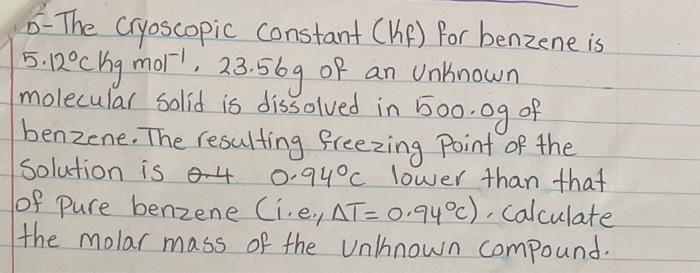 5-The cryoscopic constant (Kf) for benzene is
5.12°c kg mol-¹. 23.56g of an unknown
molecular solid is dissolved in 500.0g of
benzene. The resulting freezing point of the
solution is 0.4 0.94°c lower than that
of pure benzene (i.e., ΔT= 0.94°c). calculate
the molar mass of the unknown compound.